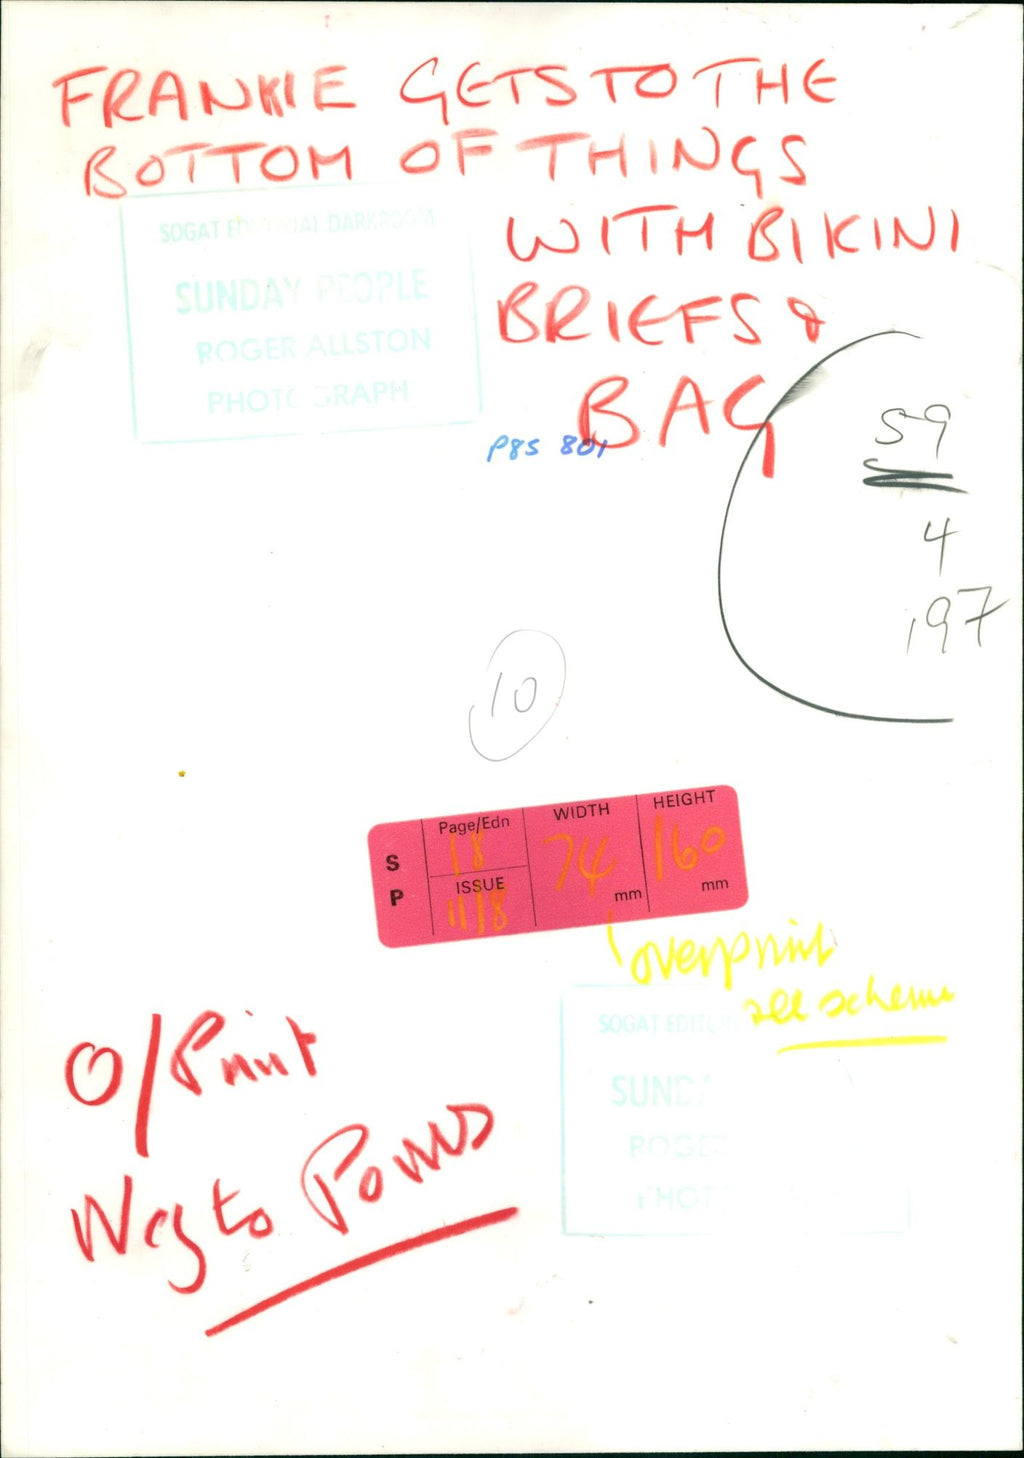 FRANKIE GETS TO THE
BOTTOM OF THINGS
WITH BIKINI
BRIEFS &
BAG
SOGAT EDITORIAL DARKROOM
SUNDAY PEOPLE
ROGER ALLSTON
PHOTOGRAPH
P85 801
59
4
197
10
S P
Page/Edn
18
ISSUE
11/8
WIDTH
74
mm
HEIGHT
160
mm
overprint
see scheme
SOGAT EDIT
SUND
ROGE
PHOT
O/Print
Neg to